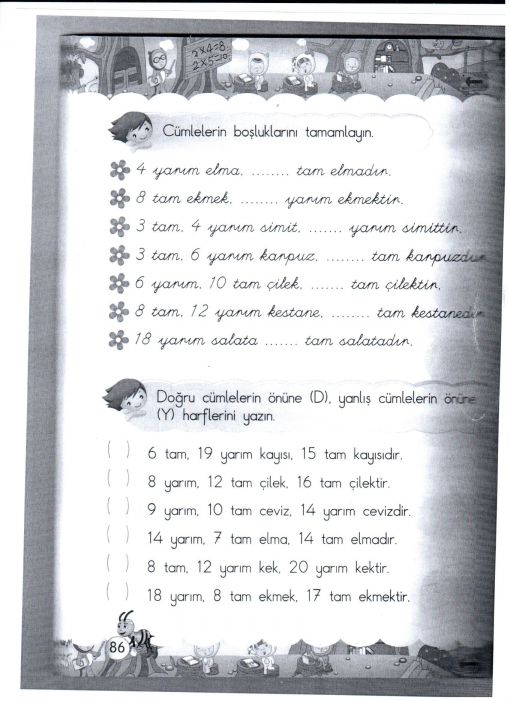 2x4=8
2x5=10
Cümlelerin boşluklarını tamamlayın.
4 yarım elma, ........ tam elmadır.
8 tam ekmek, ........ yarım ekmektir.
3 tam, 4 yarım simit, ....... yarım simittir.
3 tam, 6 yarım karpuz, ........ tam karpuzdur.
6 yarım, 10 tam çilek, ....... tam çilektir.
8 tam, 12 yarım kestane, ........ tam kestanedir.
18 yarım salata ....... tam salatadır.
Doğru cümlelerin önüne (D), yanlış cümlelerin önüne
(Y) harflerini yazın.
( ) 6 tam, 19 yarım kayısı, 15 tam kayısıdır.
( ) 8 yarım, 12 tam çilek, 16 tam çilektir.
( ) 9 yarım, 10 tam ceviz, 14 yarım cevizdir.
( ) 14 yarım, 7 tam elma, 14 tam elmadır.
( ) 8 tam, 12 yarım kek, 20 yarım kektir.
( ) 18 yarım, 8 tam ekmek, 17 tam ekmektir.
86